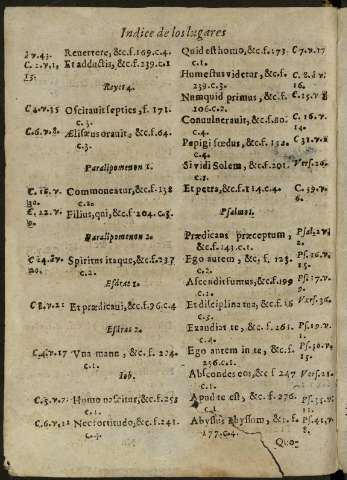 Indice de los lugares
à v.43. Revertere, &c. f. 169. c. 4.
C. 2. v. 1, Et adductis, &c. f. 239. c. 1
15.
Reyes 4.
C. 4. v. 35 Oscitavit septies, f. 171.
c. 3.
C. 6. v. 8. Ælisæus oravit, &c. f. 64.
c. 3.
Paralipomenon 1.
C. 18. v. Commoveatur, &c. f. 138
C. 22. v. Filius, qui, &c. f. 204. c. 3.
Paralipomenon 2.
Spiritus itaque, &c. f. 237
20. c. 2.
Esdras 1.
C 8. v. 21 Et prædicavi, &c. f. 96. c. 4
Esdras 2.
C. 4. v. 17 Vna manu, &c. f. 204.
c. 1.
Iob.
C. 3. v. 7. Homo nascitur, &c. f. 253
c. 1.
C. 6. v. 12 Nec fortitudo, &c. f. 241.
Quid est homo, &c. f. 173. C 7. v. 17
c. 1.
Humectus videtur, &c. f.
239. c. 3. 16.
Numquid primus, &c. f. C 15. v
106. c. 2.
Convulneravit, &c. f. 80. C. 16. v.
c. 4. 14.
Pepigi fœdus, &c. f. 152. C 31. v
c. 4.
Si vidi Solem, &c. f. 201. Vers. 26.
c. 1.
Et petra, &c. f. 114. c. 4. C. 39. v.
6.
Psalmos.
Prædicans præceptum, Psal. 2. v
&c. f. 143. c. 1.
Ego autem, &c. f. 123. Ps. 16. v.
c. 2. 15.
Ascendit fumus, &c. f. 199 Ps. 17. v.
c. 1. 9.
Et disciplina tua, &c. f. 16 Vers. 36.
c. 3.
Exaudiat te, &c. f. 261. Ps. 19. v.
c. 4.
Ego autem in te, &c. f. Ps. 30. v.
256. c. 1. 15.
Abscondes eos, &c. f 247 Vers. 21.
c. 1.
Apud te est, &c. f. 276. Ps. 35. v.
c. 1.
Abyssus abyssum, &c. f. Ps. 41. v.
177. c. 4. 8.
Quo-